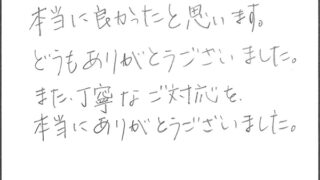 本当に良かったと思います。
どうもありがとうございました。
また、丁寧なご対応を、
本当にありがとうございました。